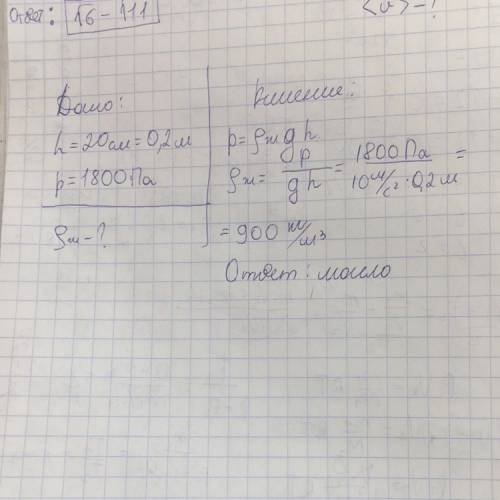 Ответ: 16 - 111
<v> - ?
Дано:
h = 20см = 0,2м
p = 1800 Па
ρж - ?
Решение:
p = ρж g h
ρж = p / gh = 1800 Па / 10 м/с² · 0,2 м =
= 900 кг/м³
Ответ: масло